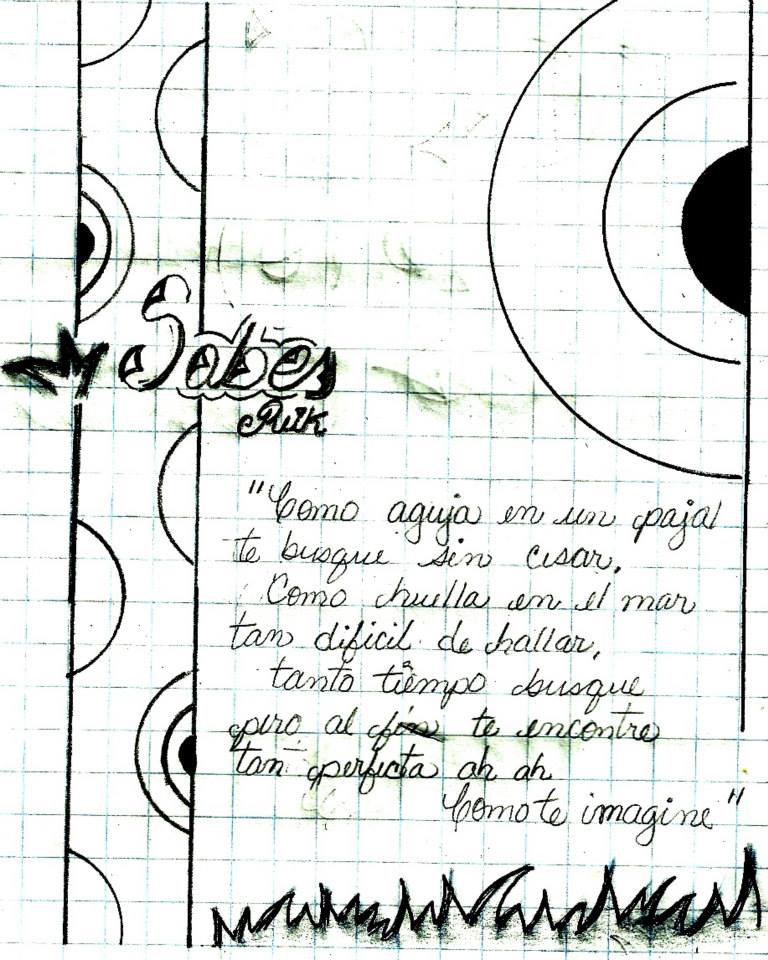 Sabes
Rúk
"Como aguja en un pajal
te busque sin cesar,
Como huella en el mar
tan dificil de hallar,
tanto tiempo busque
pero al fin te encontre
tan perfecta ah ah
Como te imagine"